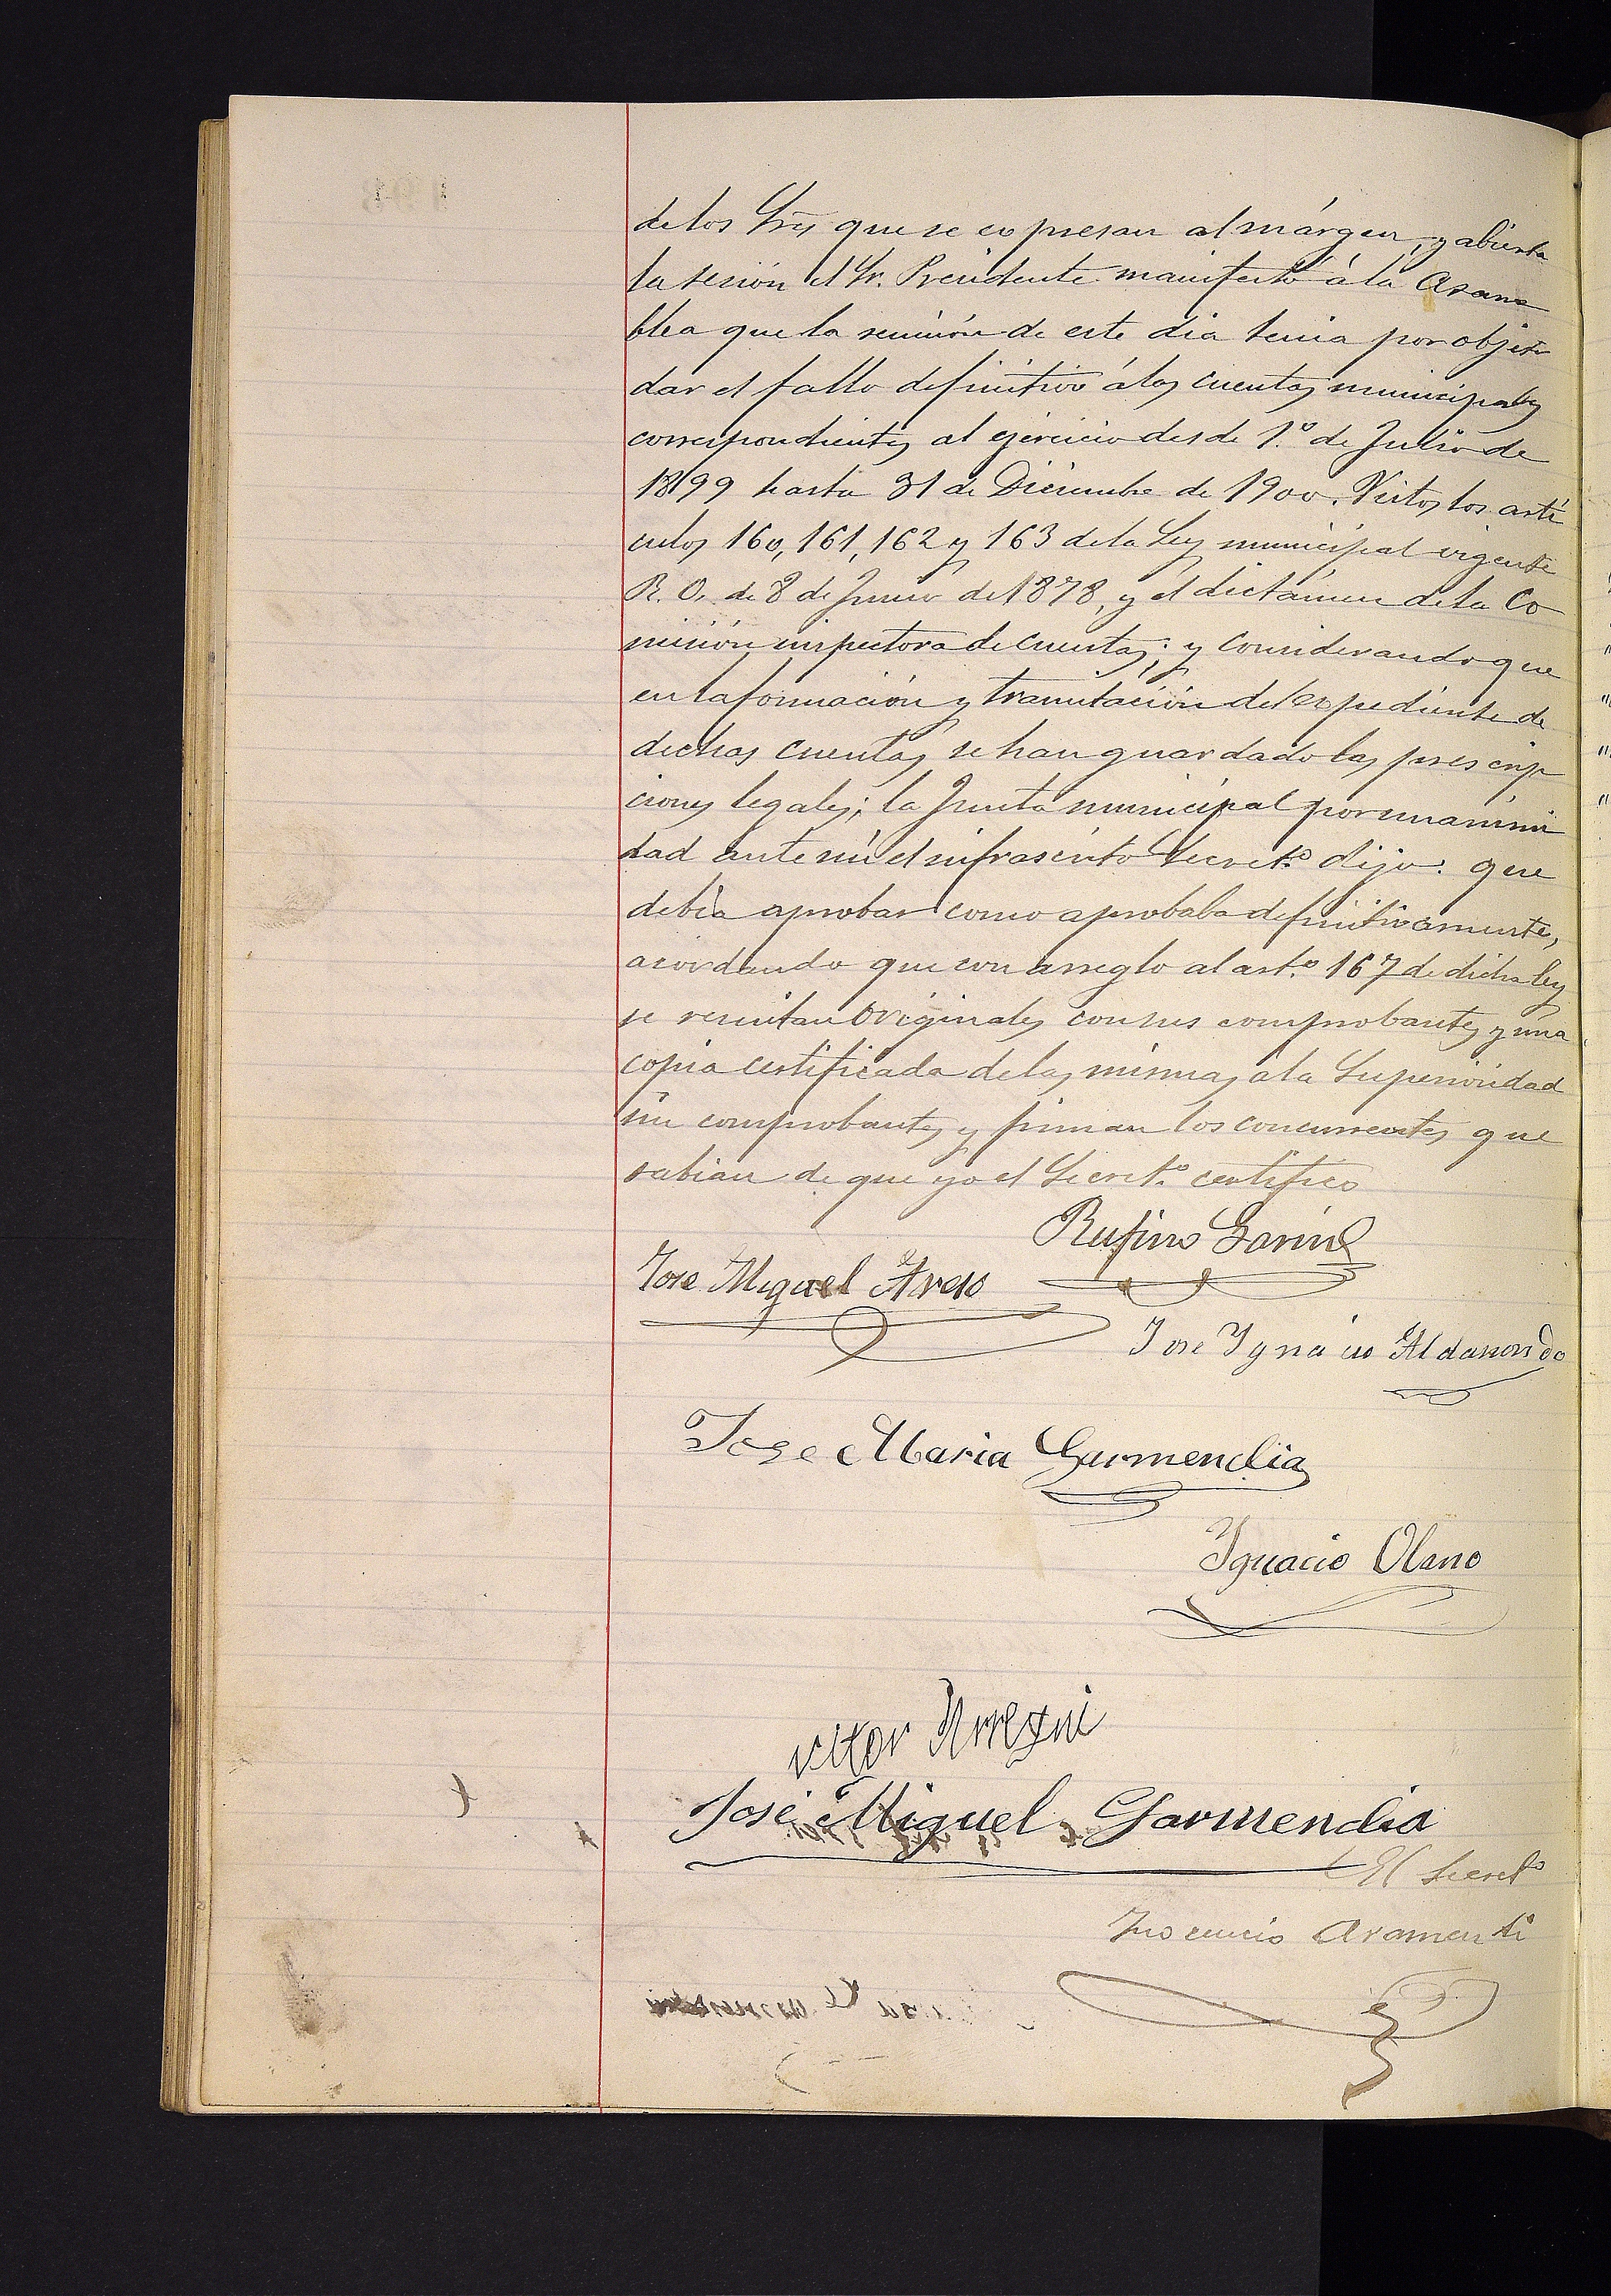 de los Srs̃ que se expresan al márgen, y abierta
la sesión el Sr. Presidente manifestó á la asam
blea que la reunión de este dia tenia por objeto
dar el fallo definitivo á las cuentas municipales
correspondientes al ejercicio desde 1.º de Julio de
1899 hasta 31 de Diciembre de 1900. Vistos los arti
culos 160, 161, 162 y 163 de la Ley municipal vigente
R. O. de 8 de Junio de 1878, y el dictámen de la Co
misión inspectora de cuentas; y considerando que
en la formación y tramitación del expediente de
dichas cuentas se han guardado las prescrip
ciones legales; la Junta municipal por unanimi
dad ante mi el infrascrito Secretº dijo: que
debia aprobar como aprobaba definitivamente,
acordando que con arreglo al artº 167 de dicha ley
se remitan originales con sus comprobantes y una
copia certificada de las mismas á la Superioridad
sin comprobantes y firman los concurrentes que
sabian de que yo el Secretº certifico
Rufino
Jose Miguel
Jose Ygnacio Aldanondo
Jose Maria Garmendia
Ygnacio Olano
victor Urregui
José Miguel Garmendia
El Secretº
Inocencio Aramendi